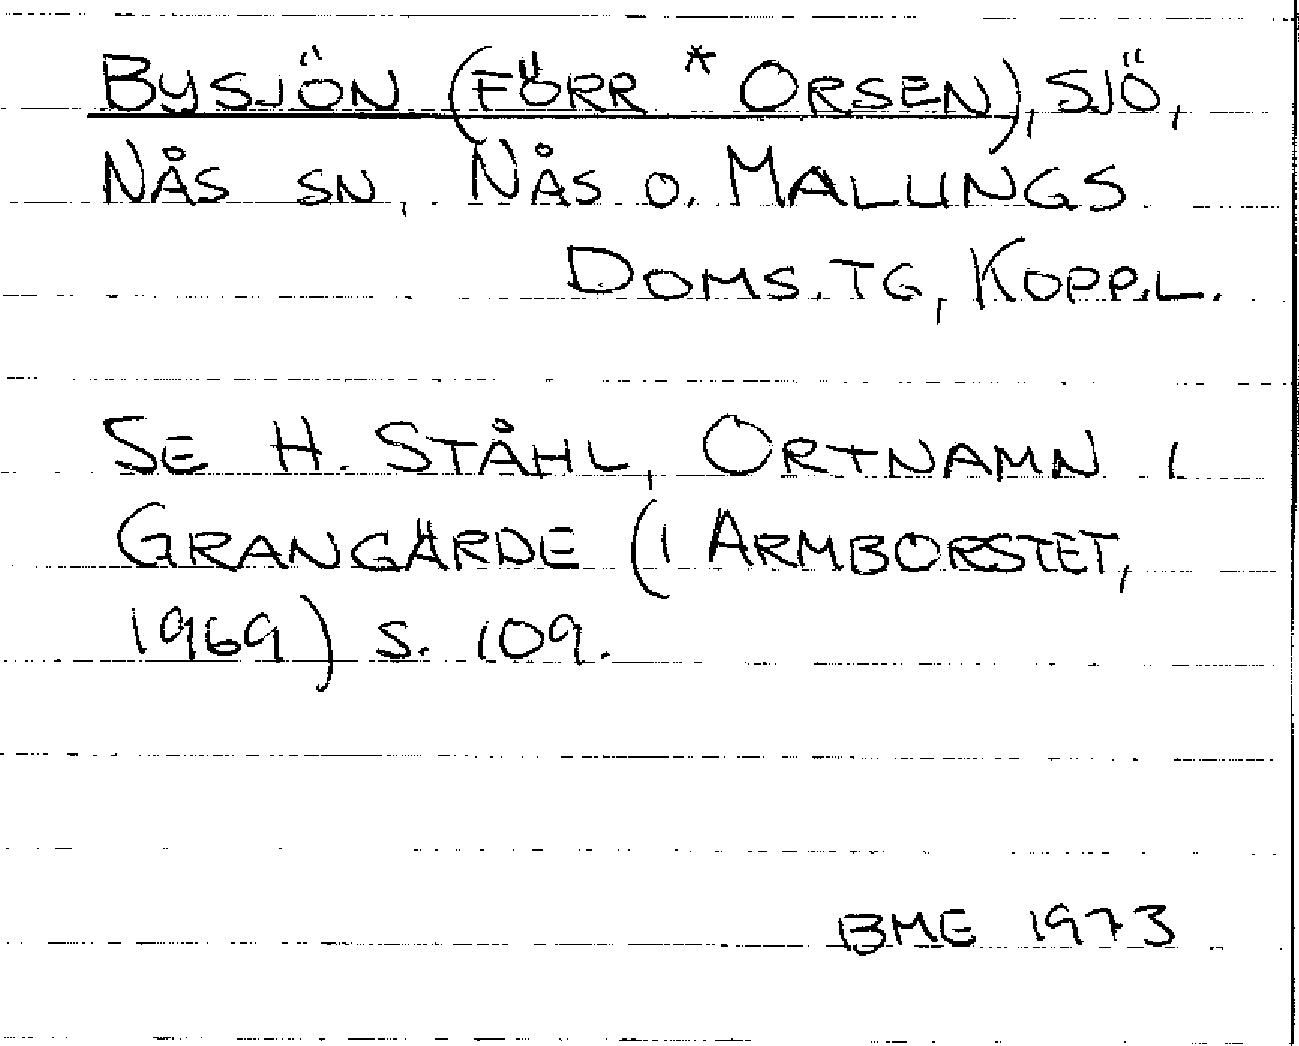 BYSJÖN (FÖRR * ORSEN), SJÖ,
NÅS SN, NÅS O. MALUNGS
DOMS.TG, KOPP.L.
SE H. STÅHL, ORTNAMN I
GRANGÄRDE (I ARMBORSTET,
1969) S. 109.
BME 1973